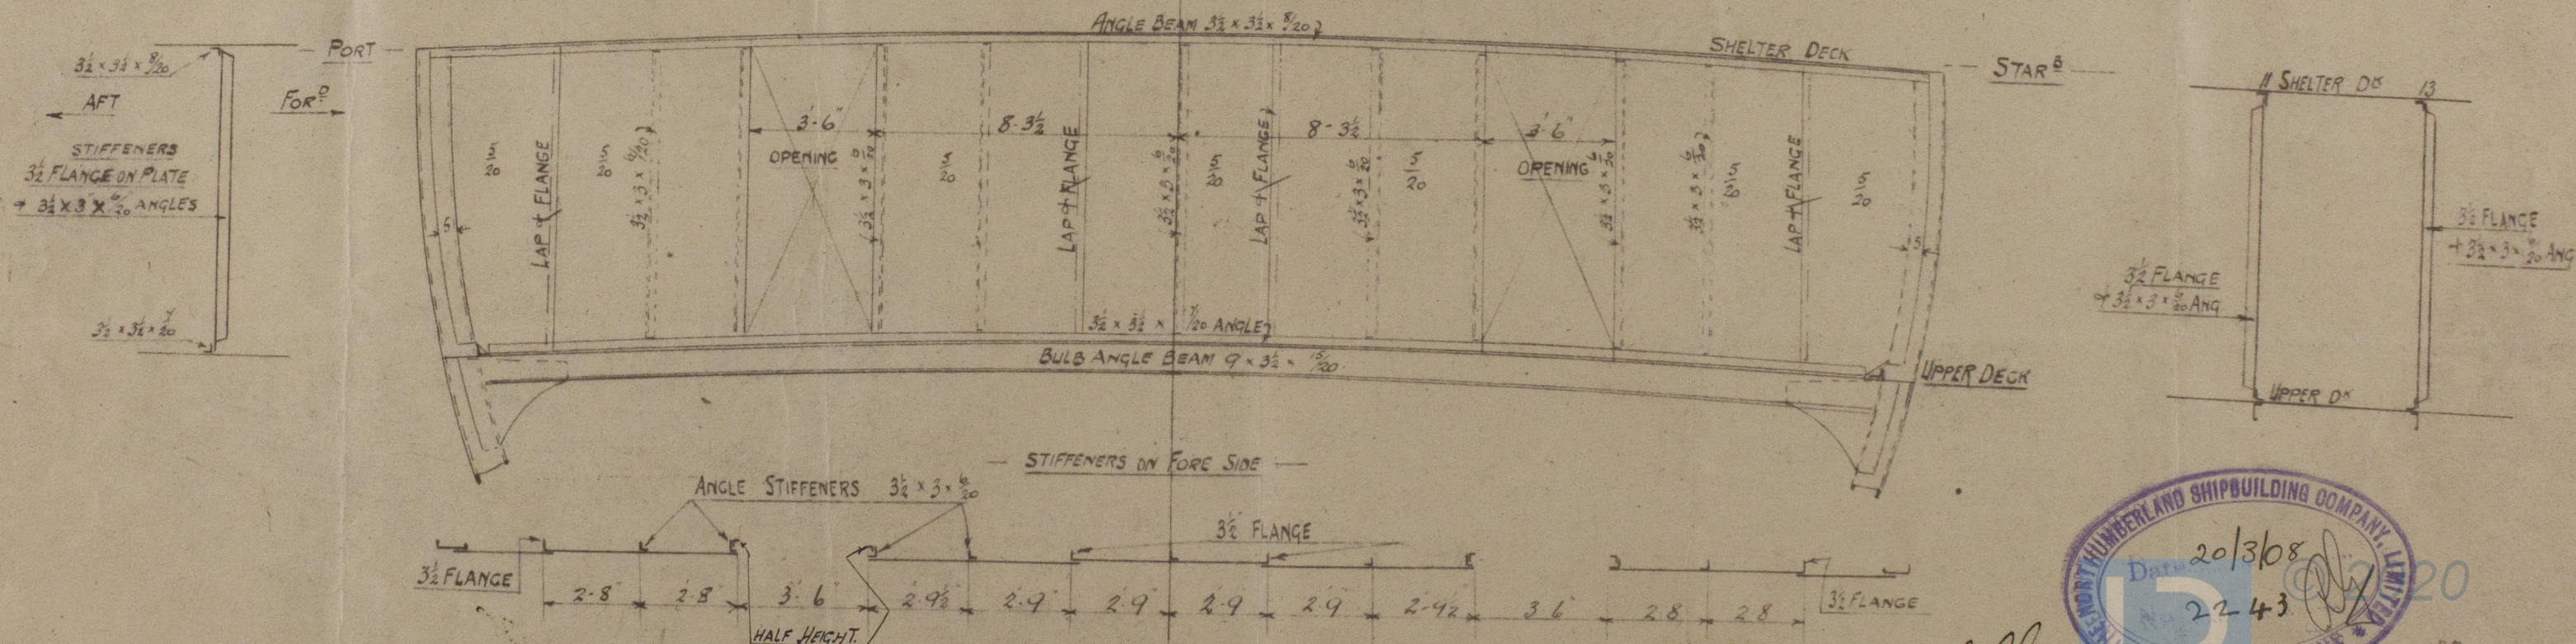 ANGLE BEAM 3½ × 3½ × 8/20
PORT
SHELTER DECK
STAR B
3½ × 3½ × 8/20
AFT
FOR D
STIFFENERS
3½ FLANGE ON PLATE
+ 3½ × 3 × 6/20 ANGLES
3½ × 3½ × 7/20
5/20
LAP & FLANGE
5/20
3½ × 3 × 6/20
3'-6"
OPENING
3½ × 3 × 6/20
8-3½
5/20
LAP & FLANGE
3½ × 3 × 6/20
5/20
LAP & FLANGE
8-3½
3½ × 3 × 6/20
5/20
3'-6"
OPENING
3½ × 3 × 6/20
3½ × 3 × 6/20
5/20
LAP & FLANGE
5/20
5
5
3½ × 3½ × 7/20 ANGLE
BULB ANGLE BEAM 9 × 3½ × 15/20
UPPER DECK
11 SHELTER DK 13
3½ FLANGE
+ 3½ × 3 × 6/20 ANG
3½ FLANGE
+ 3½ × 3 × 6/20 ANG
UPPER DK
STIFFENERS ON FORE SIDE
ANGLE STIFFENERS 3½ × 3 × 6/20
3½" FLANGE
3½ FLANGE
3½ FLANGE
2-8" 2-8" 3'-6" 2-9½" 2-9" 2-9 2-9 2-9 2-9½ 3-6" 2-8 2-8
HALF HEIGHT.
NORTHUMBERLAND SHIPBUILDING COMPANY, LIMITED
Date 20/3/08
No 2243
© 2020